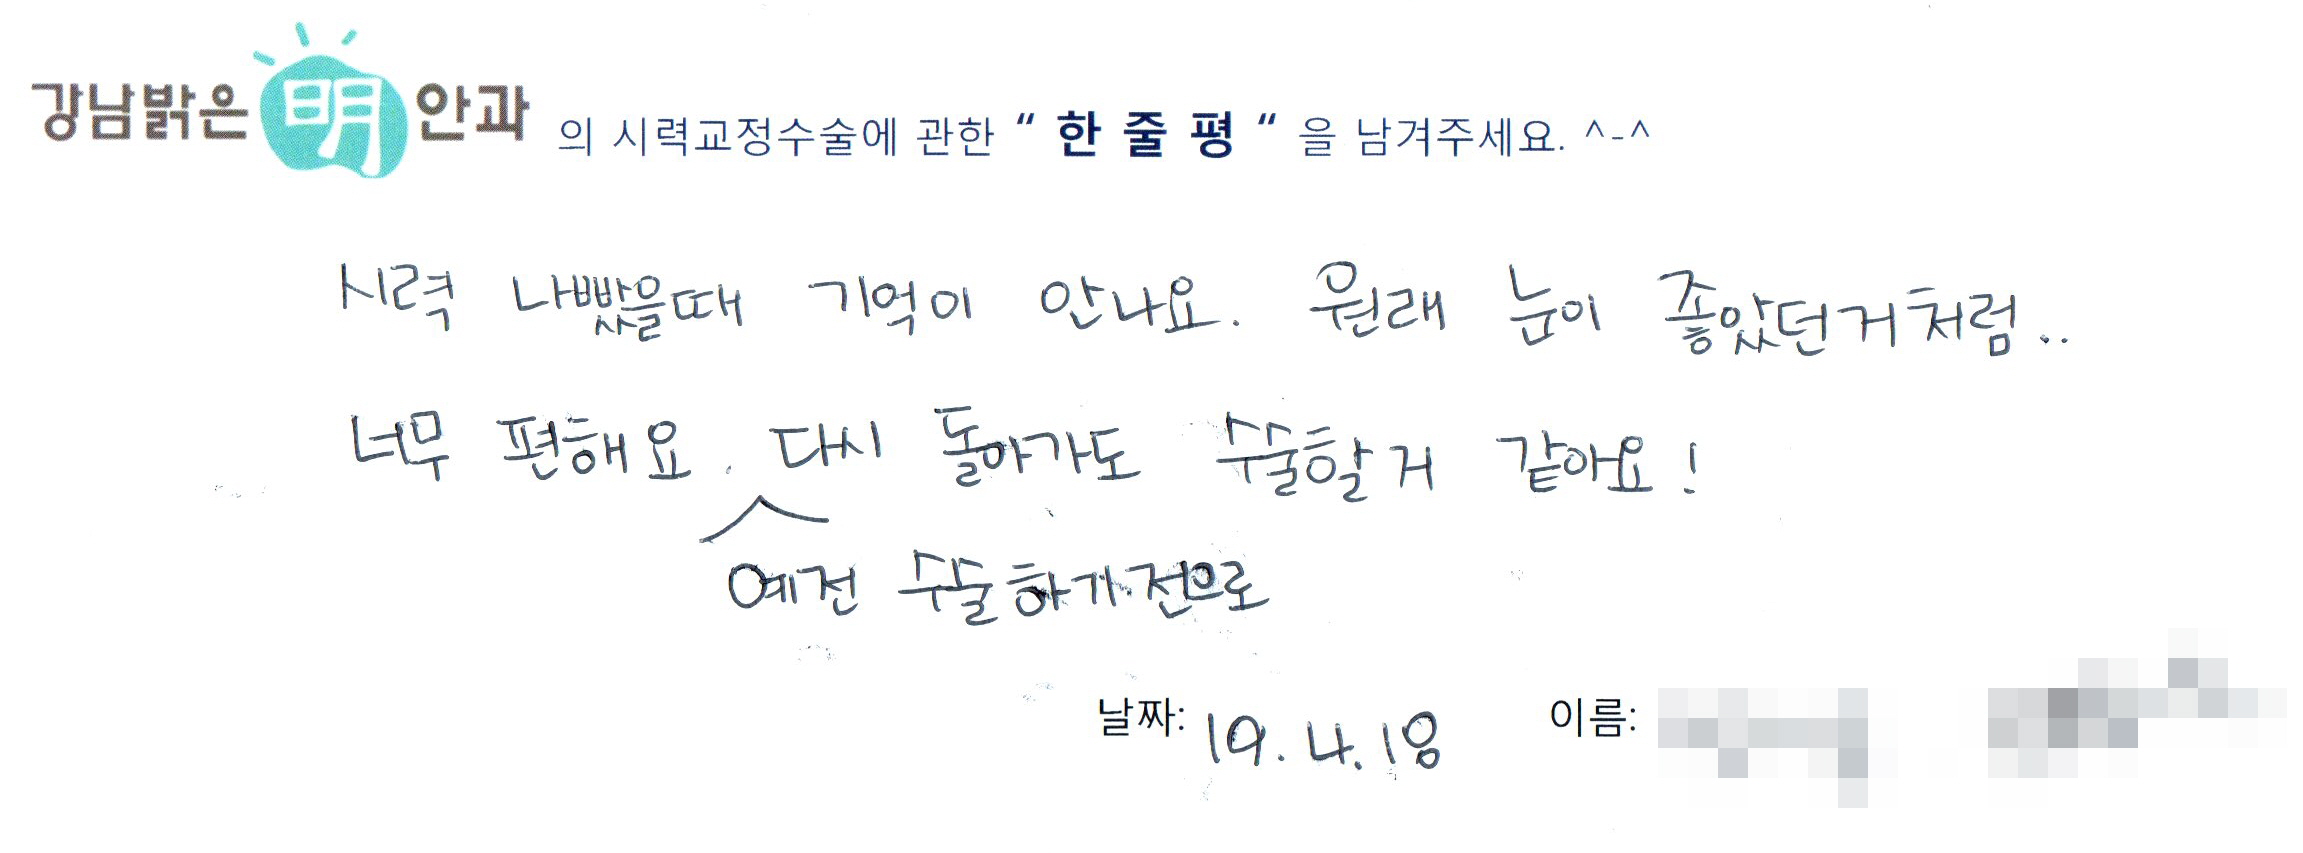 강남밝은 明 안과 의 시력교정수술에 관한 “ 한 줄 평 “ 을 남겨주세요. ^-^
시력 나빴을때 기억이 안나요. 원래 눈이 좋았던거처럼..
너무 편해요. 다시 돌아가도 수술할거 같아요!
예전 수술하기전으로
날짜: 19.4.18 이름: